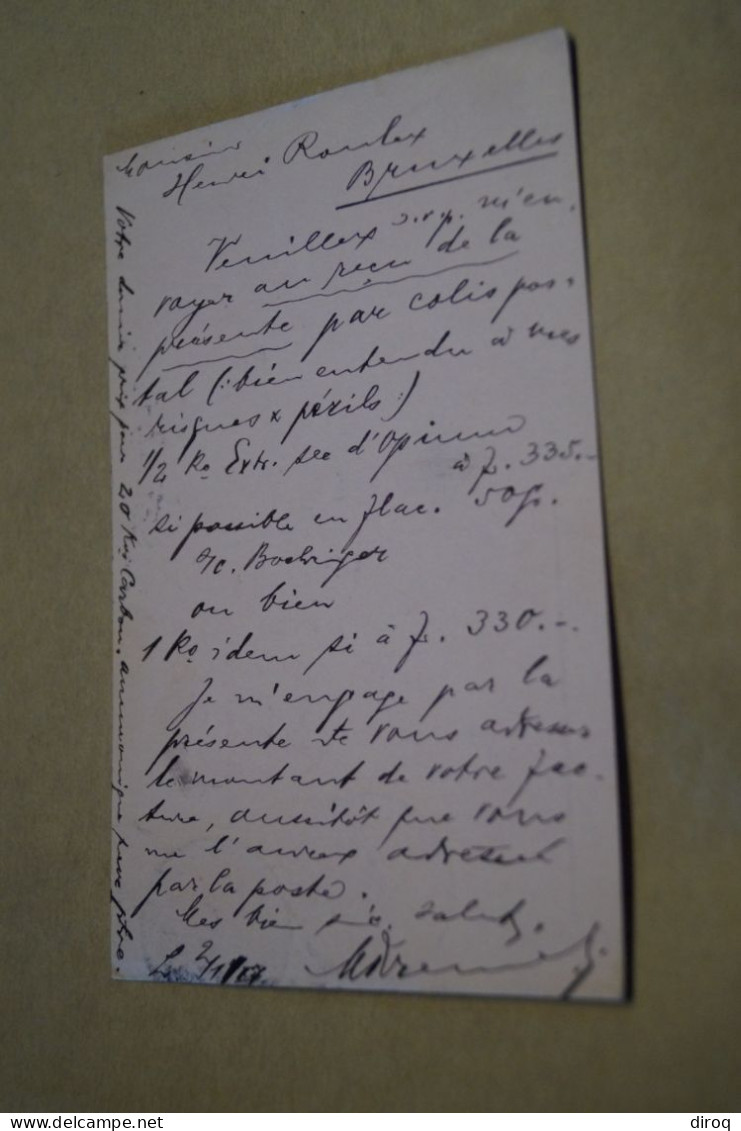 Monsieur
Henri Roulex
Bruxelles
Veuillex s.v.p. m'en-
voyer au reçu de la
présente par colis pos-
tal (: bien entendu à mes
risques x périls :)
1/2 Ko Extr. sec d'Opium
à f. 335.-
si possible en flac. 50 g.
Boehringer
ou bien
1 Ko. idem si à f. 330.-.
Je m'engage par la
présente de vous adresser
le montant de votre fac-
ture, aussitôt que vous
me l'aurex adressé
par la poste.
Mes bien sinc. salut.
2/1/07.
Votre dernier prix pour 20 Kos Carbon. ammoniaque pure
diroq